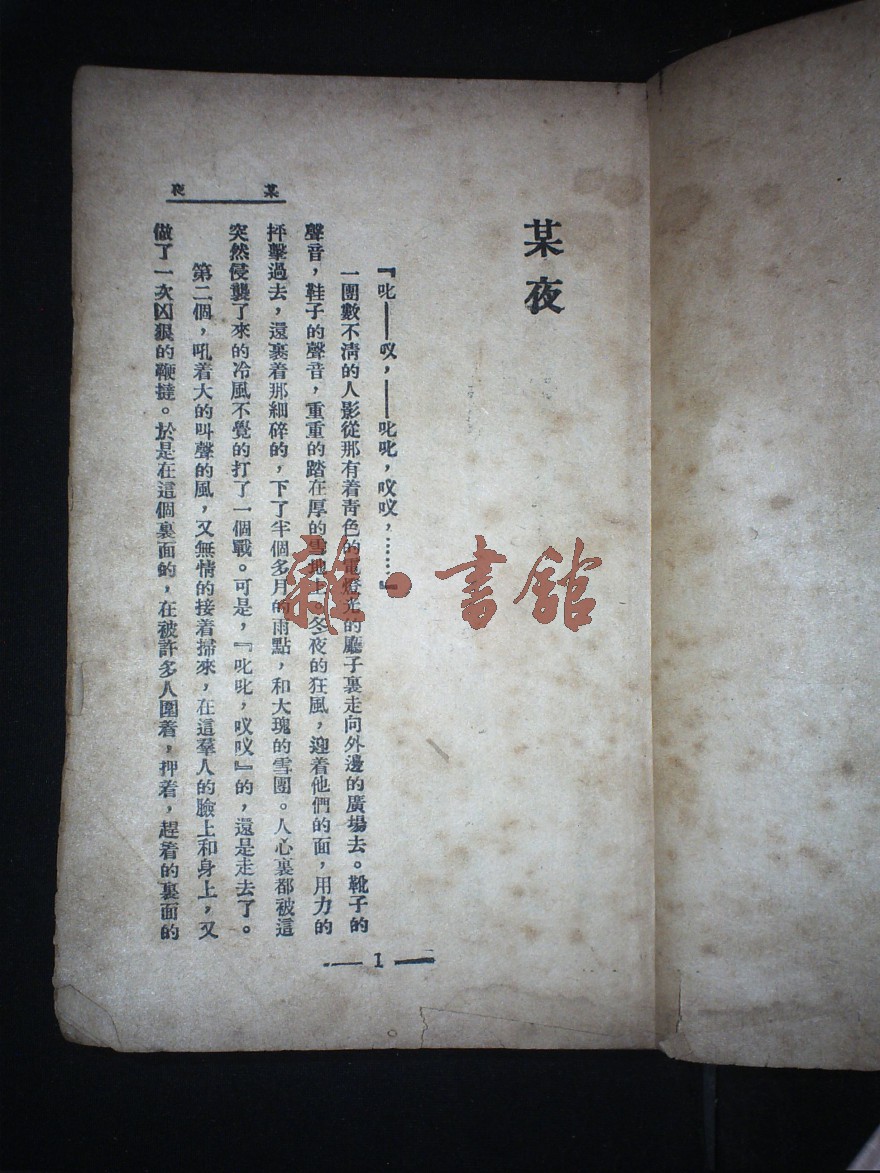 某夜
某夜
『叱——哎，——叱叱，哎哎，……』
一團數不淸的人影從那有着靑色的電燈光的廳子裏走向外邊的廣場去。靴子的
聲音，鞋子的聲音，重重的踏在厚的雪地上。冬夜的狂風，迎着他們的面，用力的
抨擊過去，還裹着那細碎的，下了半個多月的雨點，和大瑰的雪團。人心裏都被這
突然侵襲了來的冷風不覺的打了一個戰。可是，『叱叱，哎哎』的，還是走去了。
第二個，吼着大的叫聲的風，又無情的接着掃來，在這羣人的臉上和身上，又
做了一次凶狠的鞭撻。於是在這個裏面的，在被許多人圍着，押着，趕着的裏面的
1
雜·書館